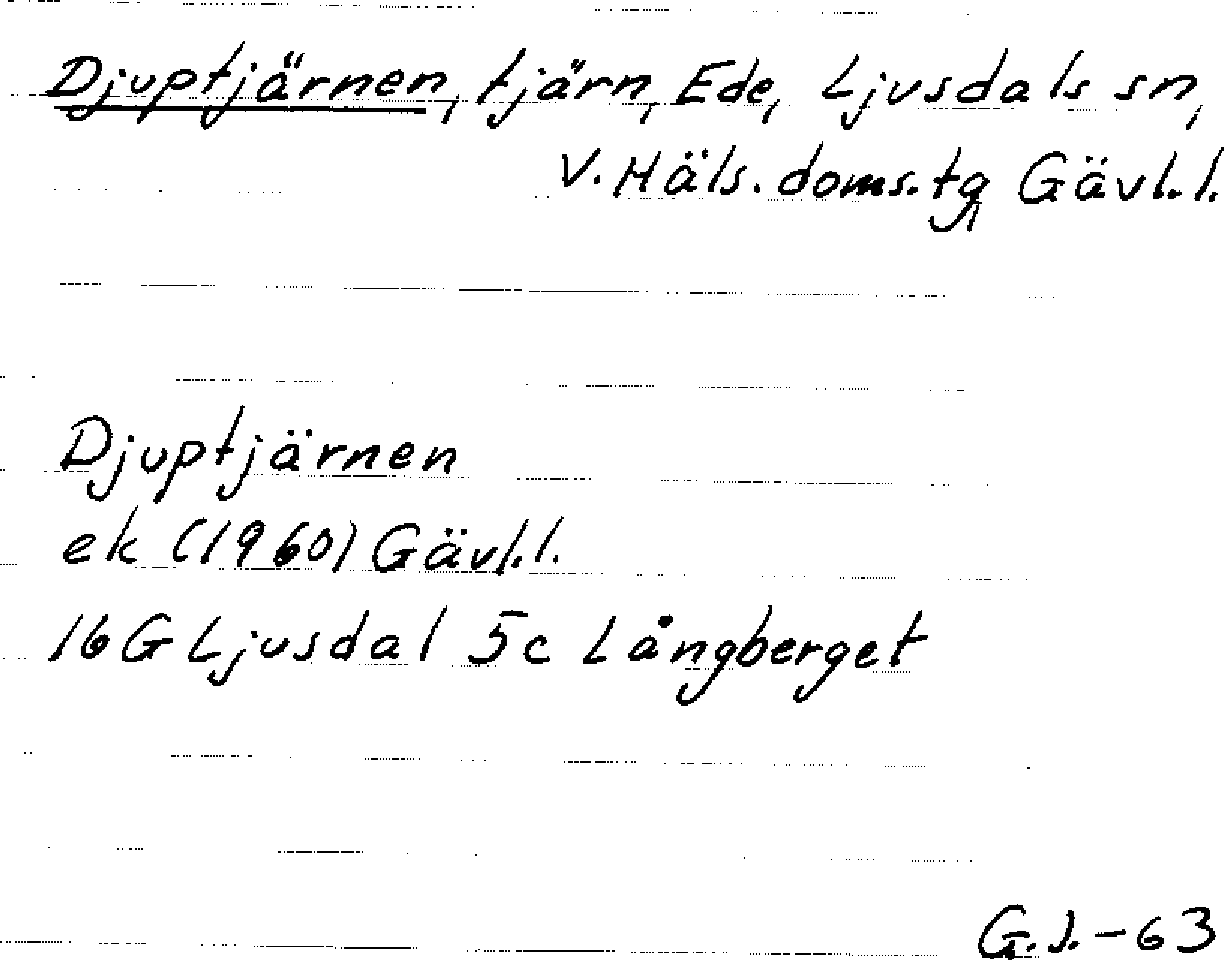 Djuptjärnen, tjärn, Ede, Ljusdals sn,
V. Häls. doms. tg, Gävl. l.
Djuptjärnen
ek (1960) Gävl. l.
16G Ljusdal 5c Långberget
G.J.-63